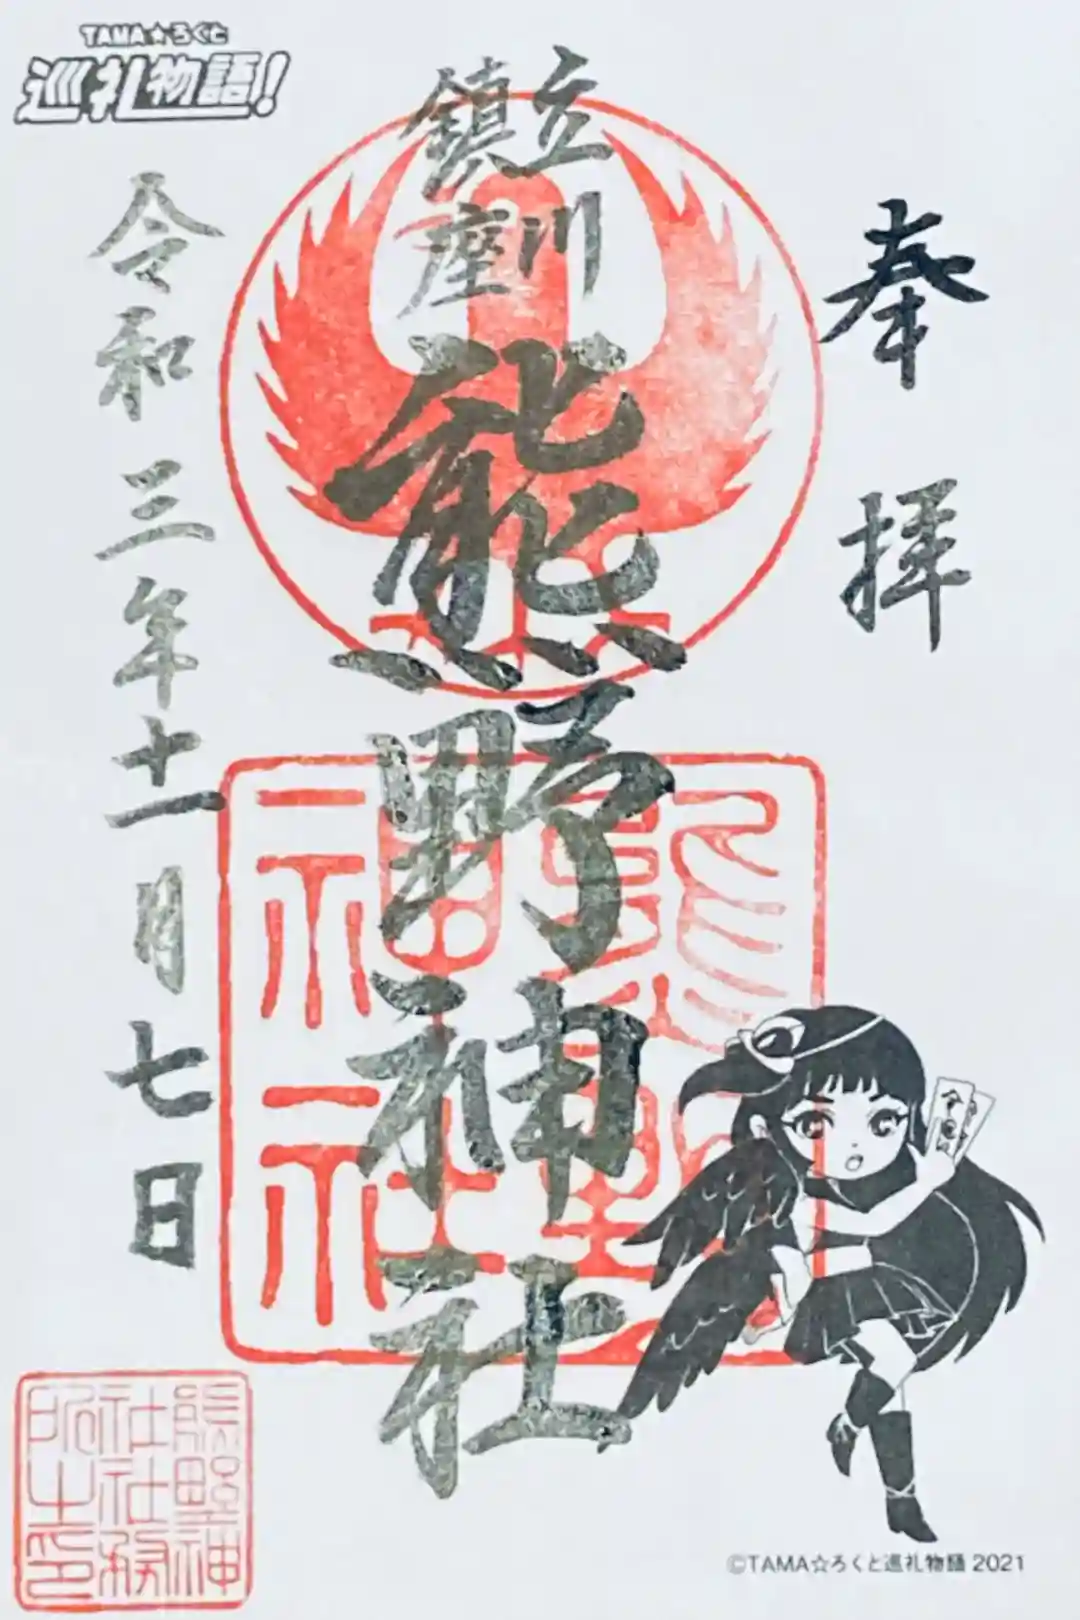 TAMA☆ろくと
巡礼物語!
奉拝
立川
鎮座
熊野神社
令和三年十一月七日
熊野
神社
熊野神
社社務
所之印
©TAMA☆ろくと巡礼物語 2021